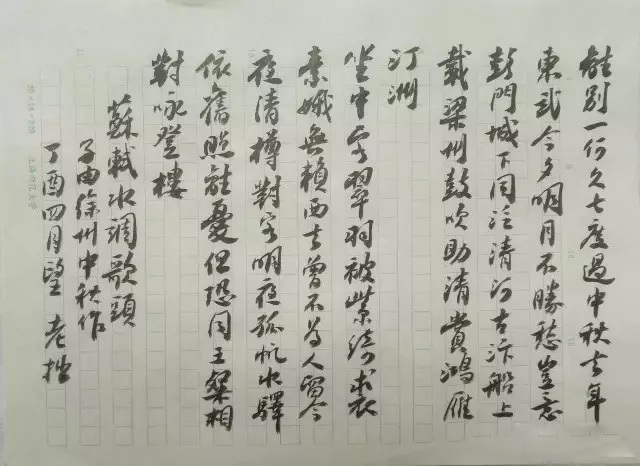 離別一何久七度過中秋去年
東武今夕明月不勝愁豈意
彭門城下同泛清河古汴船上
載梁州鼓吹助清賞鴻雁
汀洲
坐中客翠羽被紫綺裘
素娥無賴西去曾不為人留今
夜清樽對客明夜孤帆水驛
依舊照離憂但恐同王粲相
對咏登樓
蘇軾水調歌頭
子由徐州中秋作
丁酉四月望 老拙
20×15=300